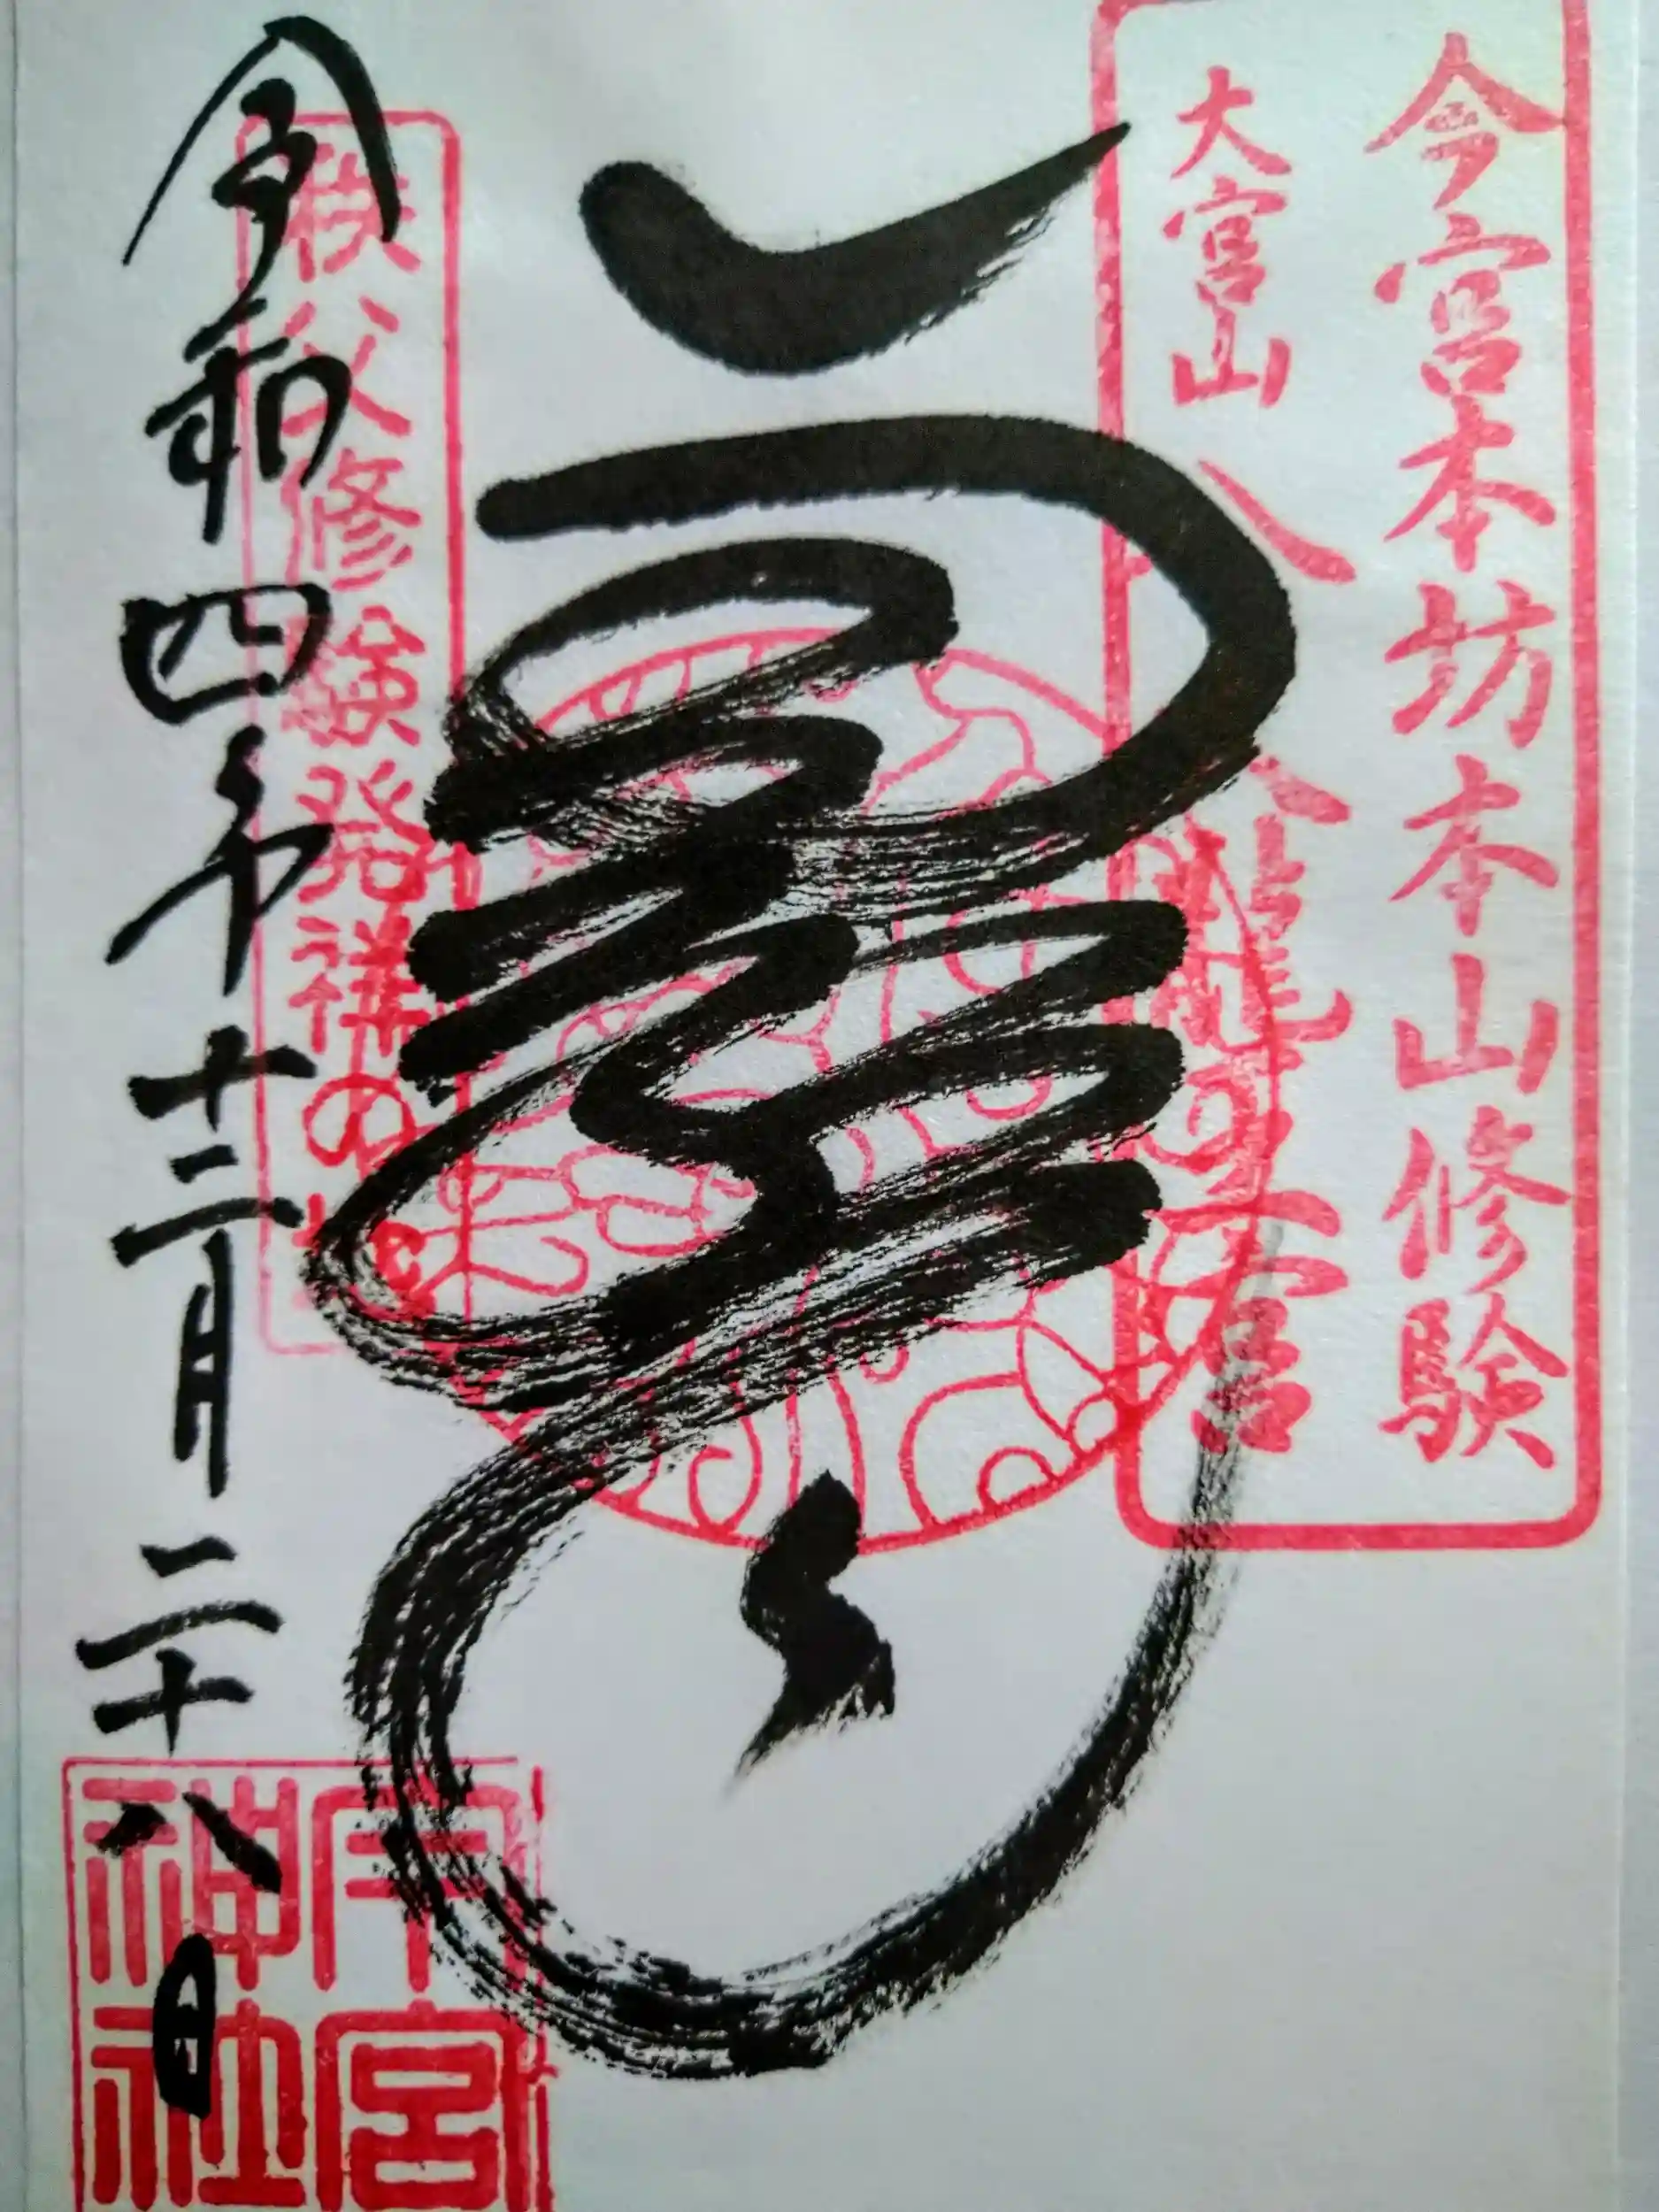 今宮本坊本山修験
大宮山 八大龍王宮
秩父修験発祥の地
令和四年十二月二十八日
今宮
神社